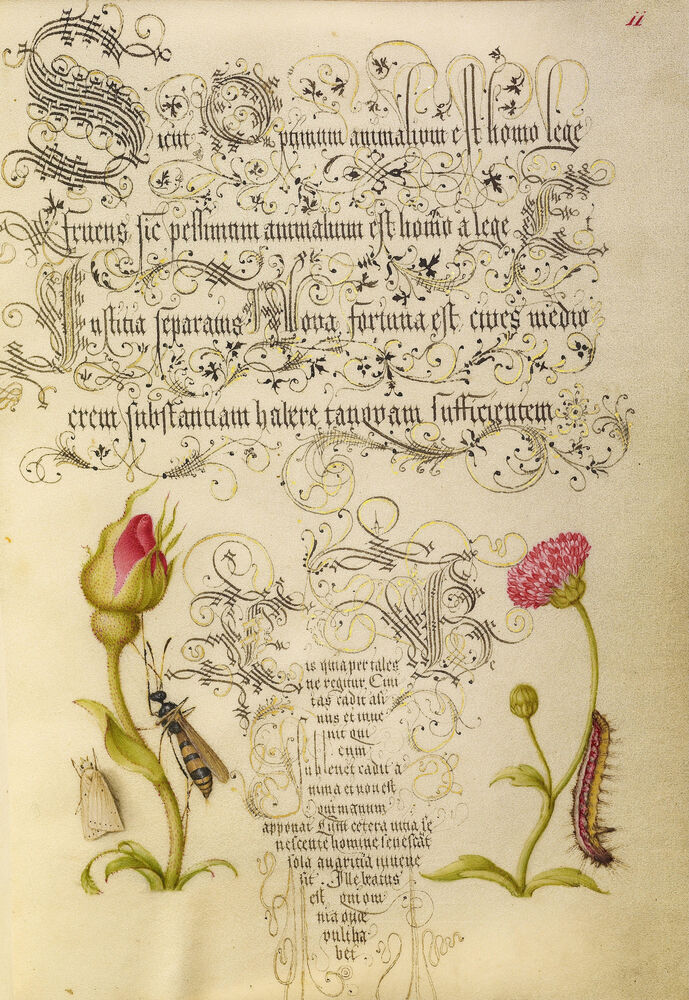 ii
Sicut Optimum animalium est homo lege
fruens, sic pessimum animalium est homo a lege Et
Iustitia separatus Nova fortuna est, cives medio
crem substantiam habere tanquam sufficientem
is quia per tales
ne regitur Civi
tas cadit asi
nus et inve
nit qui
cum
sublevet cadit a
nima et non est
qui manum
apponat Cum cetera vitia se
nescente homine senescat
sola avaritia iuvene
sit. Ille beatus
est qui om
nia que
vult ha
bet